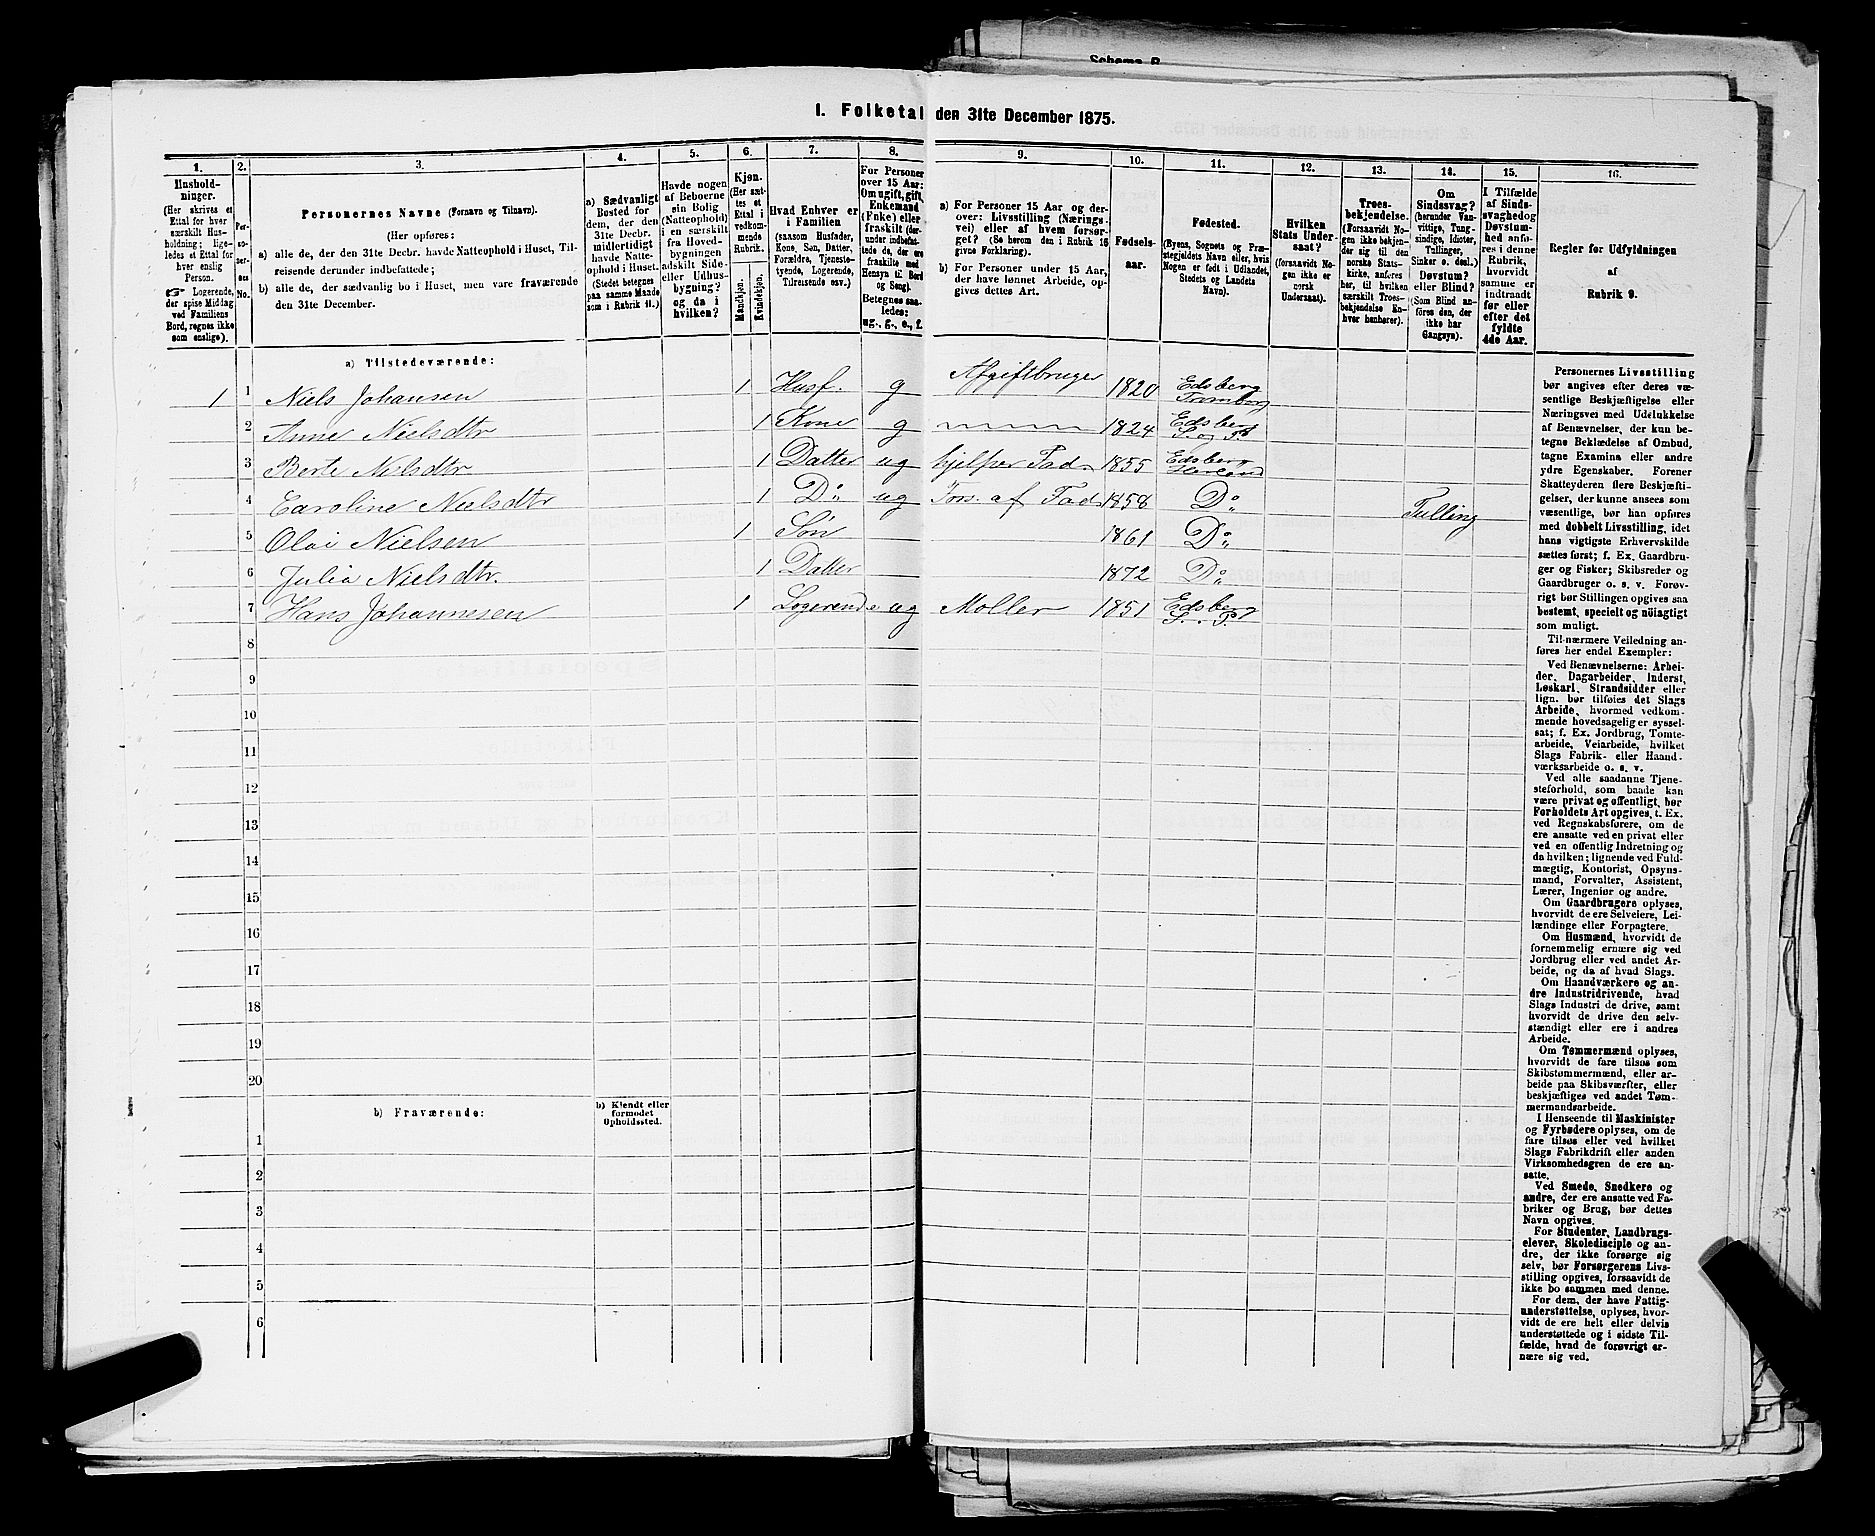 Schema B
1. Folketal den 31te December 1875.
1. 2. 3. 4. 5. 6. 7. 8. 9. 10. 11. 12. 13. 14. 15. 16.
Husholdninger.
(Her skrives et Ettal for hver særskilt Husholdning; ligeledes et Ettal for hver enslig Person.
☞ Logerende, der spise Middag ved Familiens Bord, regnes ikke som enslige).
Personernes No.
Personernes Navne (Fornavn og Tilnavn).
(Her opføres:
a) alle de, der den 31te Decbr. havde Natteophold i Huset, Tilreisende derunder indbefattede;
b) alle de, der sædvanlig bo i Huset, men vare fraværende den 31te December.
a) Sædvanligt Bosted for dem, der den 31te Decbr. midlertidigt havde Natteophold i Huset. (Stedet betegnes paa samme Maade som i Rubrik 11.)
Havde nogen af Beboerne sin Bolig (Natteophold) i en særskilt fra Hovedbygningen adskilt Side- eller Udhusbygning? og da i hvilken?
Kjøn.
(Her sættes et Ettal i vedkommende Rubrik.
Mandkjøn. Kvindekjøn.
Hvad Enhver er i Familien
(saasom Husfader, Kone, Søn, Datter, Forældre, Tjenestetyende, Logerende, Tilreisende osv.)
For Personer over 15 Aar: Om ugift, gift, Enkemand (Enke) eller fraskilt (derunder indbefattede de, der ere fraskilte med Hensyn til Bord og Seng).
Betegnes saaledes: ug., g., e., f.
a) For Personer 15 Aar og derover: Livsstilling (Næringsvei) eller af hvem forsørget? (Se herom den i Rubrik 16 givne Forklaring).
b) For Personer under 15 Aar, der have lønnet Arbeide, opgives dettes Art.
Fødselsaar.
Fødested.
(Byens, Sognets og Præstegjeldets Navn eller, hvis Nogen er født i Udlandet, Stedets og Landets Navn).
Hvilken Stats Undersaat?
(forsaavidt Nogen ikke er norsk Undersaat).
Troesbekjendelse.
(Forsaavidt Nogen ikke bekjender sig til den norske Statskirke, anføres her, til hvilken særskilt Troesbekjendelse Enhver henhører).
Om Sindssvag? (herunder Vanvittige, Tungsindige, Idioter, Tullinger, Sinker o. desl.) Døvstum? eller Blind? (Som Blind anføres den, der ikke har Gangsyn).
I Tilfælde af Sindssvaghed og Døvstumhed anføres i denne Rubrik, hvorvidt samme er indtraadt før eller efter det fyldte 4de Aar.
Regler for Udfyldningen af Rubrik 9.
a) Tilstedeværende:
1 1 Niels Johansen 1 Husf. g Afgiftbruger 1820 Edsberg Trømborg
2 Anne Nielsdtr 1 Kone g 1824 Edsberg S. og P
3 Berte Nilsdtr 1 Datter ug hjelper Fad 1855 Edsberg Herland
4 Caroline Nielsdtr 1 Do ug Fors. af Fad 1858 Do Tulling
5 Olai Nielsen 1 Søn 1861 Do
6 Julia Nielsdtr. 1 Datter 1872 Do
7 Hans Johannesen 1 Logerende ug Møller 1851 Edsberg S. . P.
8
9
10
11
12
13
14
15
16
17
18
19
20
b) Fraværende:
b) Kjendt eller formodet Opholdssted.
1
2
3
4
5
6
Personernes Livsstilling
bør angives efter deres væ-
sentlige Beskjæftigelse eller
Næringsvei med Udelukkelse
af Benævnelser, der kun be-
tegne Beklædelse af Ombud,
tagne Examina eller andre
ydre Egenskaber. Forener
Skatteyderen flere Beskjæfti-
gelser, der kunne ansees som
væsentlige, bør han opføres
med dobbelt Livsstilling, idet
hans vigtigste Erhvervskilde
sættes først; f. Ex. Gaardbru-
ger og Fisker; Skibsreder og
Gaardbruger o. s. v. Forøv-
rigt bør Stillingen opgives saa
bestemt, specielt og nøiagtigt
som muligt.
Til nærmere Veiledning an-
føres her endel Exempler:
Ved Benævnelserne: Arbei-
der, Dagarbeider, Inderst,
Løskarl, Strandsidder eller
lign. bør tilføies det Slags
Arbeide, hvormed vedkom-
mende hovedsagelig er syssel-
sat; f. Ex. Jordbrug, Tomte-
arbeide, Veiarbeide, hvilket
Slags Fabrik- eller Haand-
værksarbeide o. s. v.
Ved alle saadanne Tjene-
steforhold, som baade kan
være privat og offentligt, bør
Forholdets Art opgives, t. Ex.
ved Regnskabsførere, om de
ere ansatte ved en privat eller
ved en offentlig Indretning og
da hvilken; lignende ved Fuld-
mægtig, Kontorist, Opsyns-
mand, Forvalter, Assistent,
Lærer, Ingeniør og andre.
Om Gaardbrugere oplyses,
hvorvidt de ere Selveiere, Lei-
lændinge eller Forpagtere.
Om Husmænd, hvorvidt de
fornemmelig ernære sig ved
Jordbrug eller ved andet Ar-
beide, og da af hvad Slags.
Om Haandværkere og an-
dre Industridrivende, hvad
Slags Industri de drive, samt
hvorvidt de drive den selv-
stændigt eller ere i andres
Arbeide.
Om Tømmermænd oplyses,
hvorvidt de fare tilsøs som
Skibstømmermænd, eller ar-
beide paa Skibsværfter, eller
beskjæftiges ved andet Tøm-
mermandsarbeide.
I Henseende til Maskinister
og Fyrbødere oplyses, om de
fare tilsøs eller ved hvilket
Slags Fabrikdrift eller anden
Virksomhedsgren de ere an-
satte.
Ved Smede, Snedkere og
andre, der ere ansatte ved Fa-
briker og Brug, bør dettes
Navn opgives.
For Studenter, Landbrugs-
elever, Skoledisciple og an-
dre, der ikke forsørge sig
selv, bør Forsørgerens Livs-
stilling opgives, forsaavidt de
ikke bo sammen med denne.
For dem, der have Fattig-
understøttelse, oplyses, hvor-
vidt de ere helt eller delvis
understøttede og i sidste Til-
fælde, hvad de forøvrigt er-
nære sig ved.